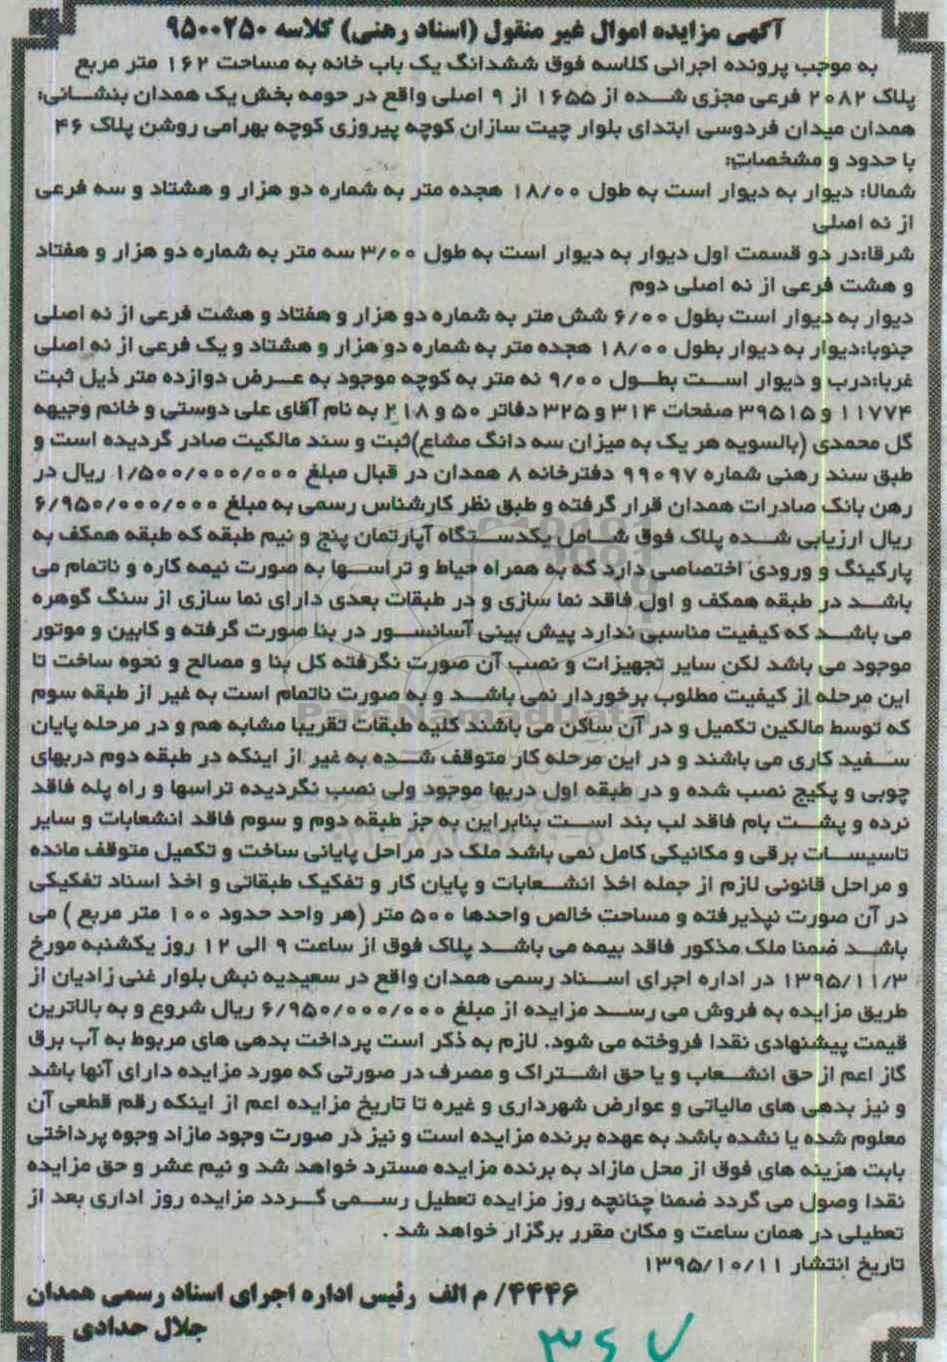 آگهی مزایده اموال غیر منقول (اسناد رهنی) کلاسه ۹۵۰۰۲۵۰
به موجب پرونده اجرائی کلاسه فوق ششدانگ یک باب خانه به مساحت ۱۶۲ متر مربع
پلاک ۲۰۸۲ فرعی مجزی شده از ۱۶۵۵ از ۹ اصلی واقع در حومه بخش یک همدان بنشانی:
همدان میدان فردوسی ابتدای بلوار چیت سازان کوچه پیروزی کوچه بهرامی روشن پلاک ۴۶
با حدود و مشخصات:
شمالا: دیوار به دیوار است به طول ۱۸/۰۰ هجده متر به شماره دو هزار و هشتاد و سه فرعی
از نه اصلی
شرقا:در دو قسمت اول دیوار به دیوار است به طول ۳/۰۰ سه متر به شماره دو هزار و هفتاد
و هشت فرعی از نه اصلی دوم
دیوار به دیوار است بطول ۶/۰۰ شش متر به شماره دو هزار و هفتاد و هشت فرعی از نه اصلی
جنوبا:دیوار به دیوار بطول ۱۸/۰۰ هجده متر به شماره دو هزار و هشتاد و یک فرعی از نه اصلی
غربا:درب و دیوار است بطول ۹/۰۰ نه متر به کوچه موجود به عرض دوازده متر ذیل ثبت
۱۱۷۷۴ و ۳۹۵۱۵ صفحات ۳۱۴ و ۳۲۵ دفاتر ۵۰ و ۲۱۸ به نام آقای علی دوستی و خانم وجیهه
گل محمدی (بالسویه هر یک به میزان سه دانگ مشاع)ثبت و سند مالکیت صادر گردیده است و
طبق سند رهنی شماره ۹۹۰۹۷ دفترخانه ۸ همدان در قبال مبلغ ۱/۵۰۰/۰۰۰/۰۰۰ ریال در
رهن بانک صادرات همدان قرار گرفته و طبق نظر کارشناس رسمی به مبلغ ۶/۹۵۰/۰۰۰/۰۰۰
ریال ارزیابی شده پلاک فوق شامل یکدستگاه آپارتمان پنج و نیم طبقه که طبقه همکف به
پارکینگ و ورودی اختصاصی دارد که به همراه حیاط و تراسها به صورت نیمه کاره و ناتمام می
باشد در طبقه همکف و اول فاقد نما سازی و در طبقات بعدی دارای نما سازی از سنگ گوهره
می باشد که کیفیت مناسبی ندارد پیش بینی آسانسور در بنا صورت گرفته و کابین و موتور
موجود می باشد لکن سایر تجهیزات و نصب آن صورت نگرفته کل بنا و مصالح و نحوه ساخت تا
این مرحله از کیفیت مطلوب برخوردار نمی باشد و به صورت ناتمام است به غیر از طبقه سوم
که توسط مالکین تکمیل و در آن ساکن می باشند کلیه طبقات تقریبا مشابه هم و در مرحله پایان
سفید کاری می باشند و در این مرحله کار متوقف شده به غیر از اینکه در طبقه دوم دربهای
چوبی و پکیج نصب شده و در طبقه اول دربها موجود ولی نصب نگردیده تراسها و راه پله فاقد
نرده و پشت بام فاقد لب بند است بنابراین به جز طبقه دوم و سوم فاقد انشعابات و سایر
تاسیسات برقی و مکانیکی کامل نمی باشد ملک در مراحل پایانی ساخت و تکمیل متوقف مانده
و مراحل قانونی لازم از جمله اخذ انشعابات و پایان کار و تفکیک طبقاتی و اخذ اسناد تفکیکی
در آن صورت نپذیرفته و مساحت خالص واحدها ۵۰۰ متر (هر واحد حدود ۱۰۰ متر مربع ) می
باشد ضمنا ملک مذکور فاقد بیمه می باشد پلاک فوق از ساعت ۹ الی ۱۲ روز یکشنبه مورخ
۱۳۹۵/۱۱/۳ در اداره اجرای اسناد رسمی همدان واقع در سعیدیه نبش بلوار غنی زادیان از
طریق مزایده به فروش می رسد مزایده از مبلغ ۶/۹۵۰/۰۰۰/۰۰۰ ریال شروع و به بالاترین
قیمت پیشنهادی نقدا فروخته می شود. لازم به ذکر است پرداخت بدهی های مربوط به آب برق
گاز اعم از حق انشعاب و یا حق اشتراک و مصرف در صورتی که مورد مزایده دارای آنها باشد
و نیز بدهی های مالیاتی و عوارض شهرداری و غیره تا تاریخ مزایده اعم از اینکه رقم قطعی آن
معلوم شده یا نشده باشد به عهده برنده مزایده است و نیز در صورت وجود مازاد وجوه پرداختی
بابت هزینه های فوق از محل مازاد به برنده مزایده مسترد خواهد شد و نیم عشر و حق مزایده
نقدا وصول می گردد ضمنا چنانچه روز مزایده تعطیل رسمی گردد مزایده روز اداری بعد از
تعطیلی در همان ساعت و مکان مقرر برگزار خواهد شد .
تاریخ انتشار ۱۳۹۵/۱۰/۱۱
۴۴۴۶/ م الف رئیس اداره اجرای اسناد رسمی همدان
جلال حدادی
۳۶۷